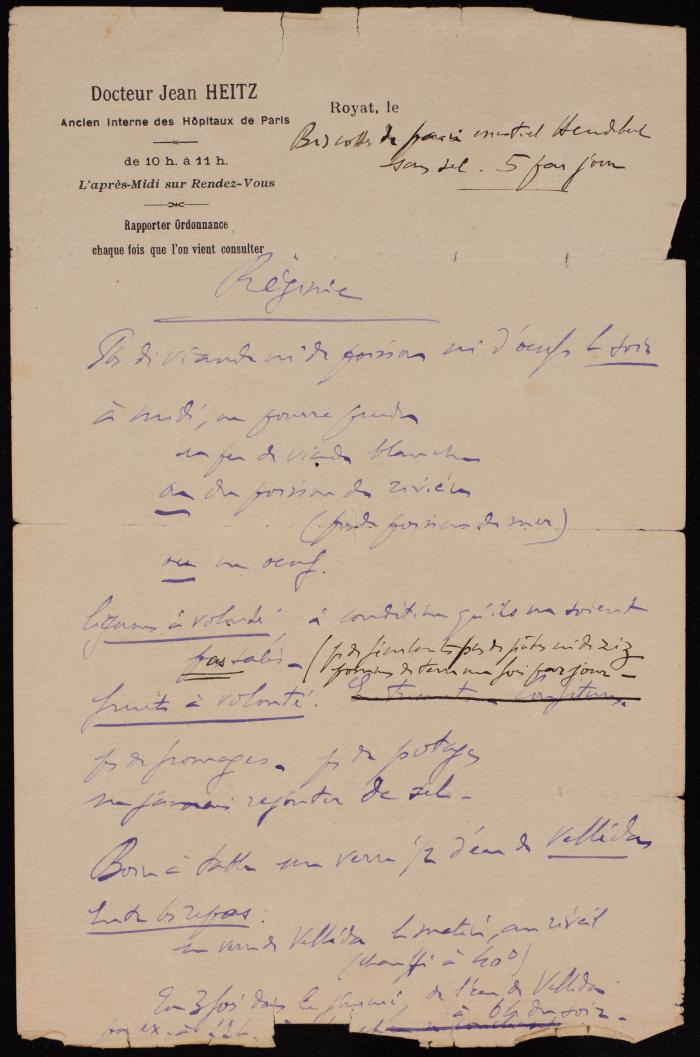 Docteur Jean HEITZ
Ancien Interne des Hôpitaux de Paris
de 10 h. à 11 h.
L'après-Midi sur Rendez-Vous
Rapporter Ordonnance
chaque fois que l'on vient consulter
Royat, le
Biscottes de pain Heudebert
sans sel. 5 par jour
Régime
Pas de viande ni de poisson ni d'oeufs le soir
à midi, on pourra prendre
un peu de viande blanche
ou du poisson de rivière
(pas de poisson de mer)
ou un oeuf.
légumes à volonté à condition qu'ils ne soient
pas salés - (pas de féculents pas de pâtes ni de riz
pommes de terre une fois par jour -
fruits à volonté. Entremets - Confitures.
pas de fromages. pas de potages
ne jamais rajouter de sel -
Boire à table un verre 1/2 d'eau de Velléda
Entre les repas :
un verre de Velléda le matin, au réveil
(chauffé à 40°)
En 3 fois dans la journée, de l'eau de Velléda
par ex. à à 6h du soir -